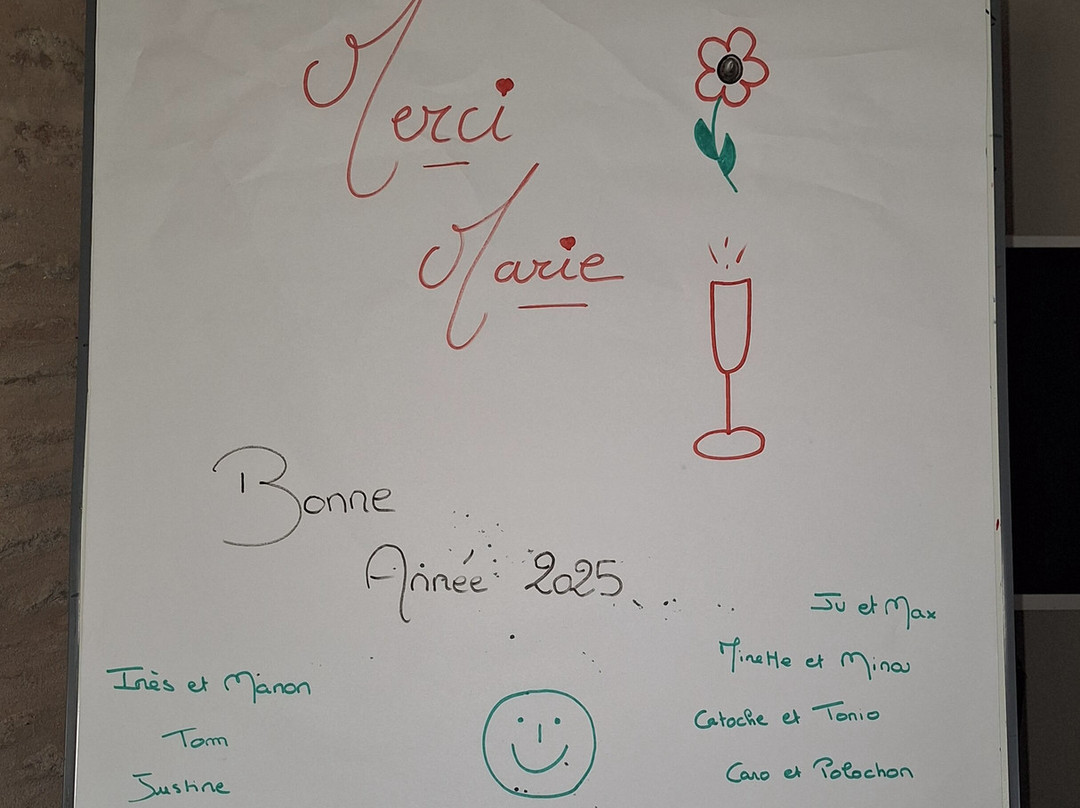 Merci
Marie
Bonne
Année 2025
Ju et Max
Minette et Mina
Catoche et Tonio
Caro et Polochon
Inès et Manon
Tom
Justine